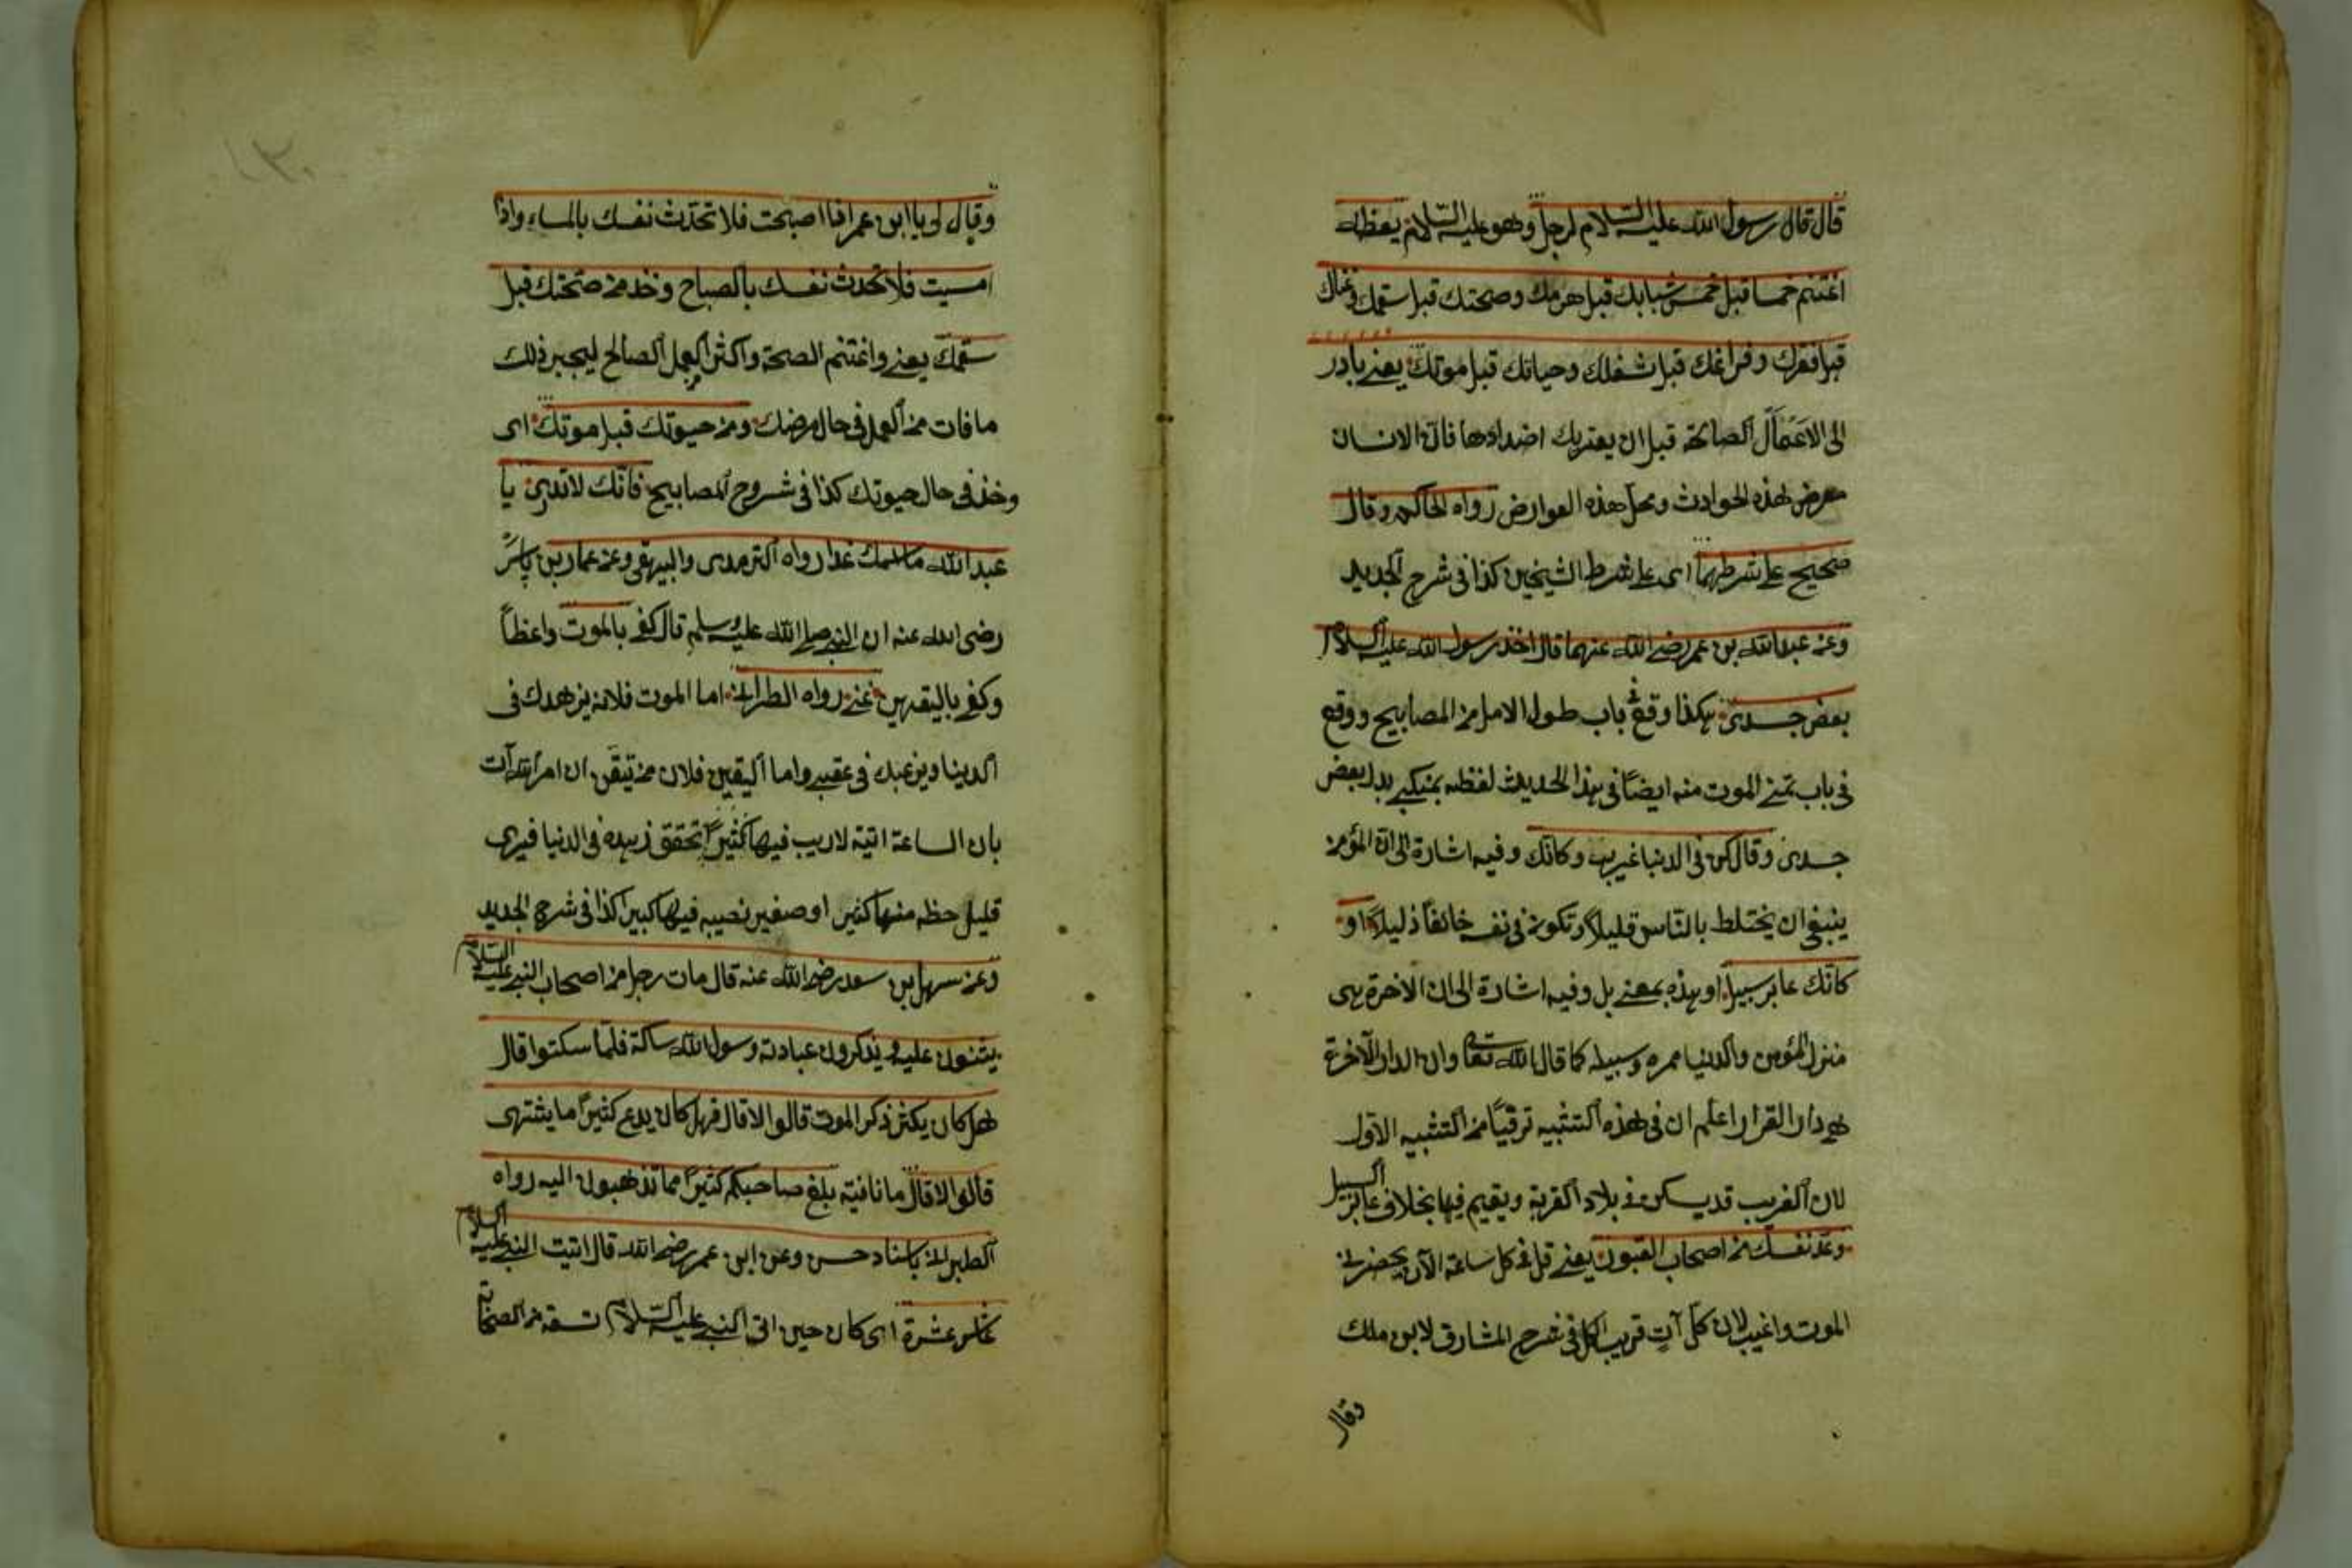 قال قال رسول الله عليه السلام لرجل وهو عليه السلام يعظه
اغتنم خمسا قبل خمس شبابك قبل هرمك وصحتك قبل سقمك وغناك
قبل فقرك وفراغك قبل شغلك وحياتك قبل موتك يعني بادر
الى الاعمال الصالحة قبل ان يعتريك اضدادها فان الانسان
معرض لهذه الحوادث ومحل هذه العوارض رواه الحاكم وقال
صحيح على شرطهما اى على شرط الشيخين كذا فى شرح الجديد
وعن عبد الله بن عمر رضي الله عنهما قال اخذ رسول الله عليه السلام
بعض جسدى هكذا وقع في باب طول الامل من المصابيح ووقع
فى باب تمنى الموت منه ايضاً فى هذا الحديث لفظه بمنكبى بدل بعض
جسدى وقال كن فى الدنيا غريب وكانك وفيه اشارة الى ان المؤمن
ينبغى ان يختلط بالناس قليلاً وتكون فى نفسه خائفاً ذليلاً او
كانك عابر سبيل او هذه بمعنى بل وفيه اشارة الى ان الاخرة هى
منزل المؤمن والدنيا ممره وسبيله كما قال الله تعالى وان الدار الآخرة
هى دار القرار اعلم ان فى هذه التشبيه ترقياً من التشبيه الاول
لان الغريب قد يسكن فى بلاد القربة ويقيم فيها بخلاف عابر السبيل
وعد نفسك من اصحاب القبور يعنى قل فى كل ساعة الآن يحضرنى
الموت واغيب لان كل آت قريب كذا فى شرح المشارق لابن ملك
وقال
وقال لى يا ابن عمر اذا اصبحت فلا تحدث نفسك بالمساء واذا
امسيت فلا تحدث نفسك بالصباح وخذ من صحتك قبل
سقمك يعنى واغتنم الصحة واكثر العمل الصالح ليجبر ذلك
ما فات من العمل فى حال مرضك ومن حيوتك قبل موتك اى
وخذ فى حال حيوتك كذا فى شروح المصابيح فانك لا تدرى يا
عبد الله ما اسمك غدا رواه الترمدى والبيهقى وعن عمار بن ياسر
رضى الله عنه ان النبى صلى الله عليه وسلم قال كفى بالموت واعظاً
وكفى باليقين غنى رواه الطبرانى اما الموت فلانه يزهدك فى
الدنيا ويرغبك فى عقبى واما اليقين فلان من تيقن ان امر الله آت
بان الساعة اتية لا ريب فيها كثيراً تحقق زهده فى الدنيا فيرى
قليل حظه منها كثير او صغير نصيبه فيها كبير كذا فى شرح الجديد
وعن سهل بن سعد رضي الله عنه قال مات رجل من اصحاب النبى عليه السلام
يثنون عليه ويذكرون عبادته ورسول الله ساكتة فلما سكتوا قال
هل كان يكثر ذكر الموت قالوا لا قال فهل كان يدع كثيراً ما يشتهى
قالوا لا قال بلغ صاحبكم كثيراً مما تذهبون اليه رواه
الطبرانى باسناد حسن وعن ابن عمر رضي الله قال اتيت النبى عليه السلام
عاشر عشرة اى كان حين اتى النبى عليه السلام تسعة من الصحابة